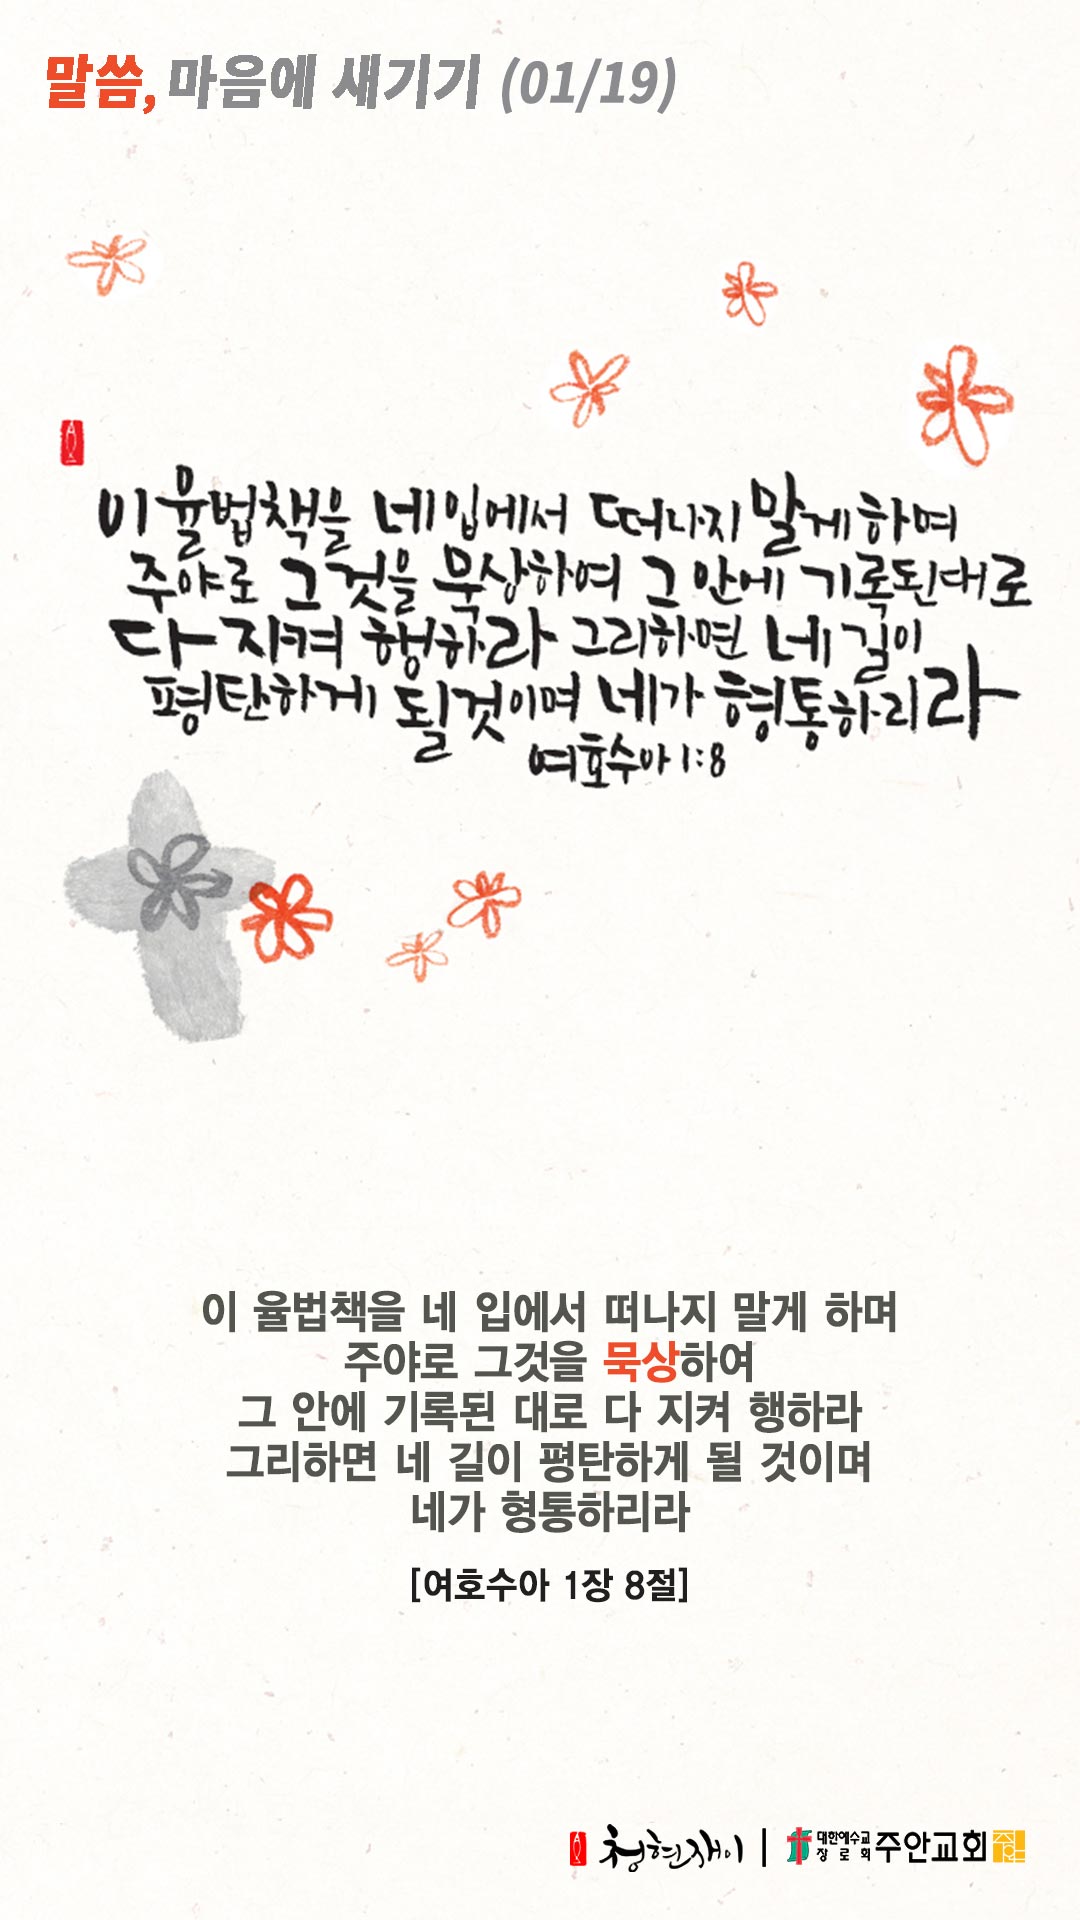 말씀, 마음에 새기기 (01/19)
이 율법책을 네 입에서 떠나지 말게 하며
주야로 그것을 묵상하여 그 안에 기록된대로
다 지켜 행하라 그리하면 네 길이
평탄하게 될것이며 네가 형통하리라
여호수아 1:8
이 율법책을 네 입에서 떠나지 말게 하며
주야로 그것을 묵상하여
그 안에 기록된 대로 다 지켜 행하라
그리하면 네 길이 평탄하게 될 것이며
네가 형통하리라
[여호수아 1장 8절]
청현재이 | 대한예수교 장로회 주안교회